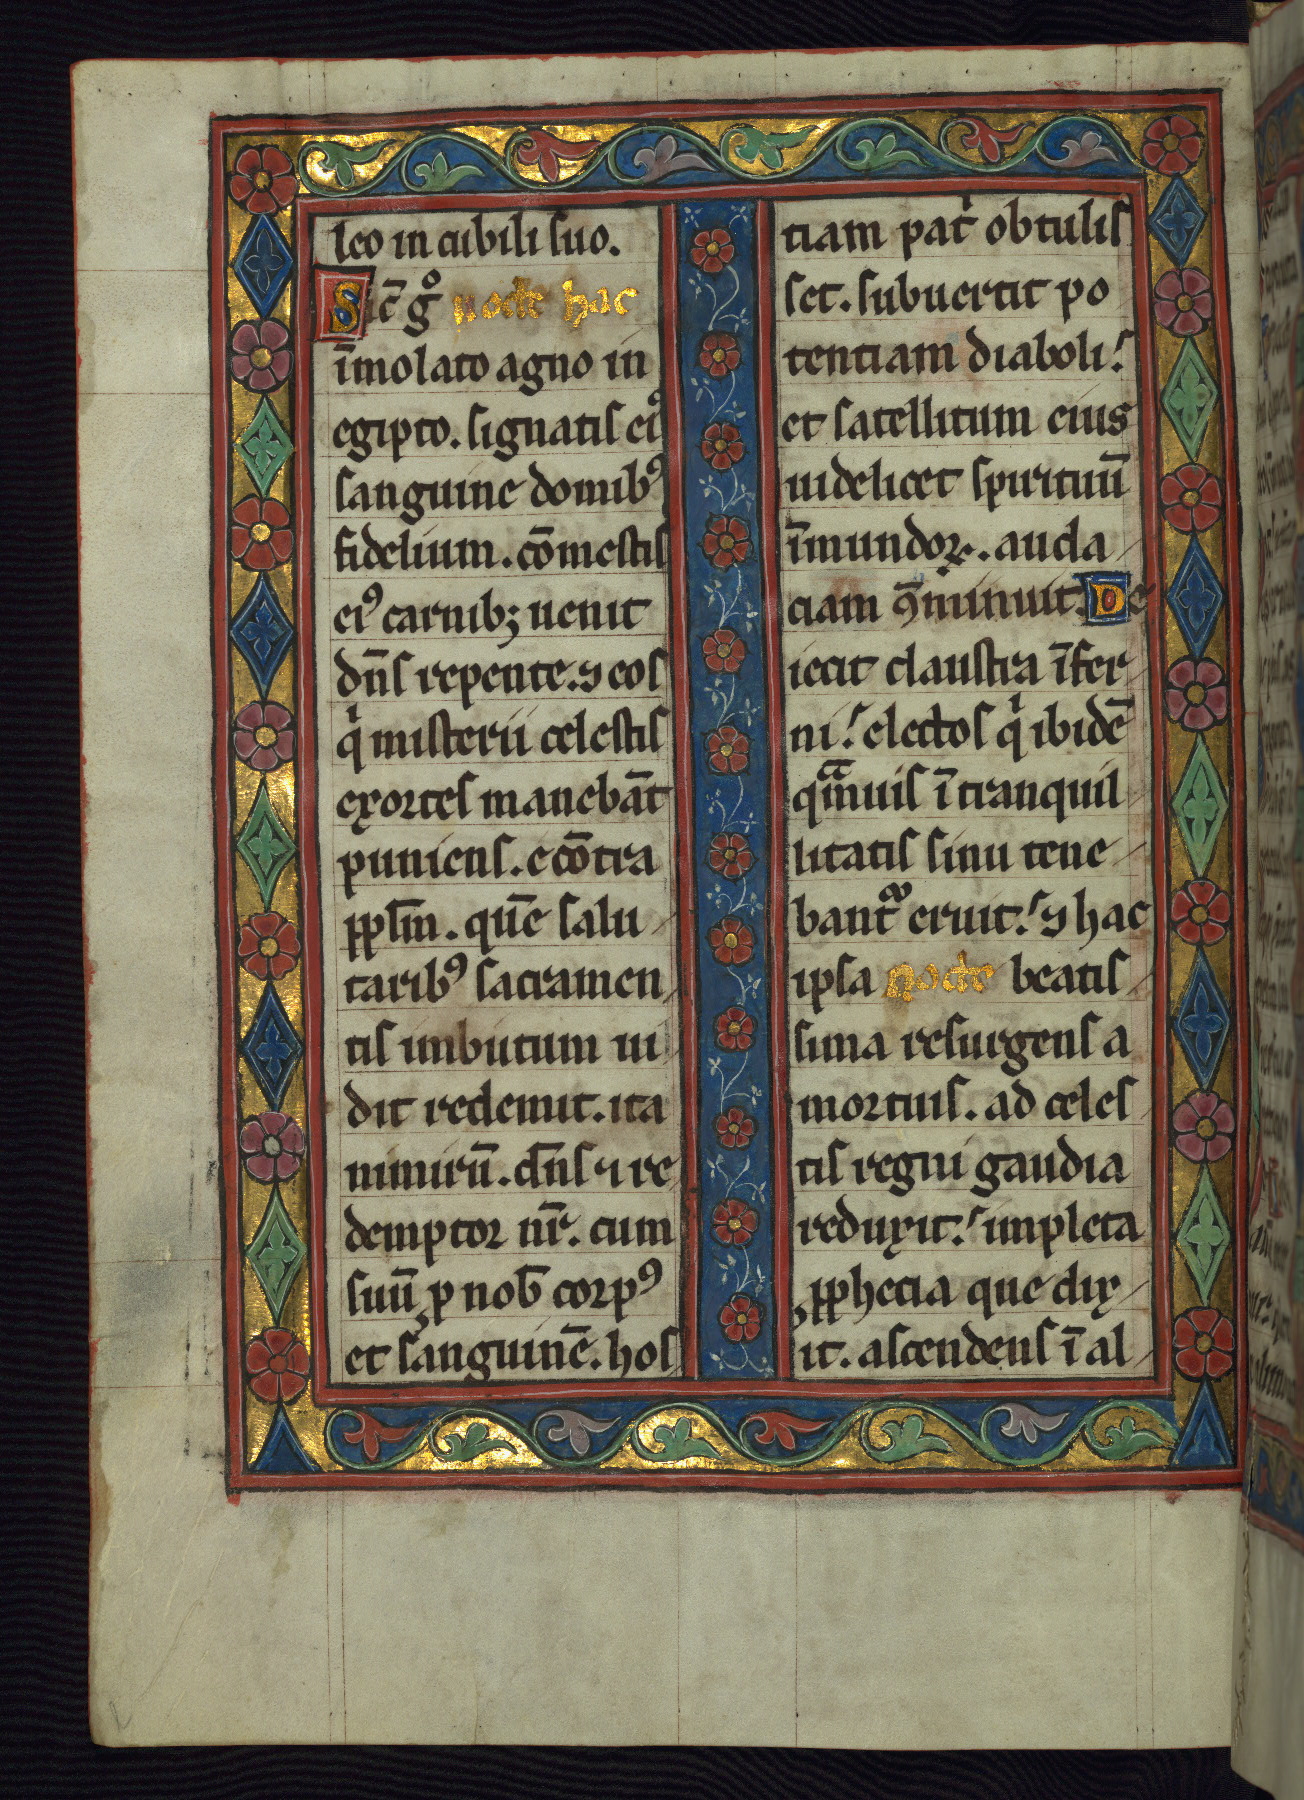 leo in cubili suo.
Sic̄ gͦ nocte hac
īmolato agno in
egipto. signatis eiꝰ
sanguine domibꝰ
fidelium. cōmestis
eiꝰ carnibꝫ uenit
dn̄s repente. ⁊ eos
qͥ misterii celestis
exortes manebāt
puniens. ecōtra
ppl̄m. quē salu
taribꝰ sacramen
tis imbutum ui
dit redemit. ita
nimirū. dn̄s ⁊ re
demptor nr̄. cum
suū ꝓ nob̄ corpꝰ
et sanguinē. hos
tiam patͥ obtulis
set. subuertit po
tentiam diaboli.
et satellitum eius
uidelicet spirituū
īmundoꝝ. auda
ciam ꝯminuit. De
iecit claustra īfer
ni. electos qͥ ibidē
qͣmuis ī tranquil
litatis sinu tene
bantᷣ eruit. ⁊ hac
ipsa nocte beatis
sima resurgens a
mortuis. ad celes
tis regni gaudia
reduxit. impleta
ꝓphecia que dix
it. ascendens ī al